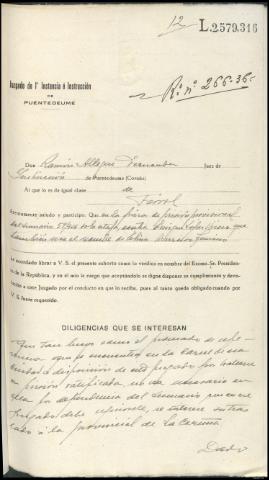 12
L.2579,316
Juzgado de 1ª Instancia é Instrucción
DE
PUENTEDEUME
R. nº 266-36-
Don Ramón Allegue Fernandez Juez de
Instrucción de Puentedeume (Coruña)
Al que lo es de igual clase de
Ferrol
atentamente saludo y participo: Que en la pieza de prisión provisional
del sumario
he acordado librar a V. S. el presente exhorto como lo verifico en nombre del Excmo. Sr. Presidente
de la República, y en el mío le ruego que aceptándolo se digne disponer su cumplimiento y devolu-
ción a este Juzgado por el conducto en que lo reciba, pues al tanto queda obligado cuando por
V. S. fuere requerido.
DILIGENCIAS QUE SE INTERESAN
Que tan luego como el procesado de refe-
rencia que se encuentra en la carcel de esa
ciudad a disposición de este Juzgado por
en prisión ratificada no sea necesario en
esa la dependencia del sumario que en ese
Juzgado debe se interese su tras
lado a la provincial de La Coruña
Dado